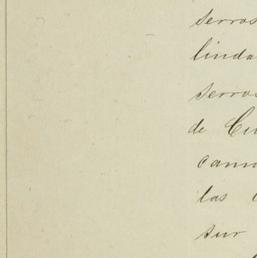 serros
linda
serros
de Cu
cami
las
sur